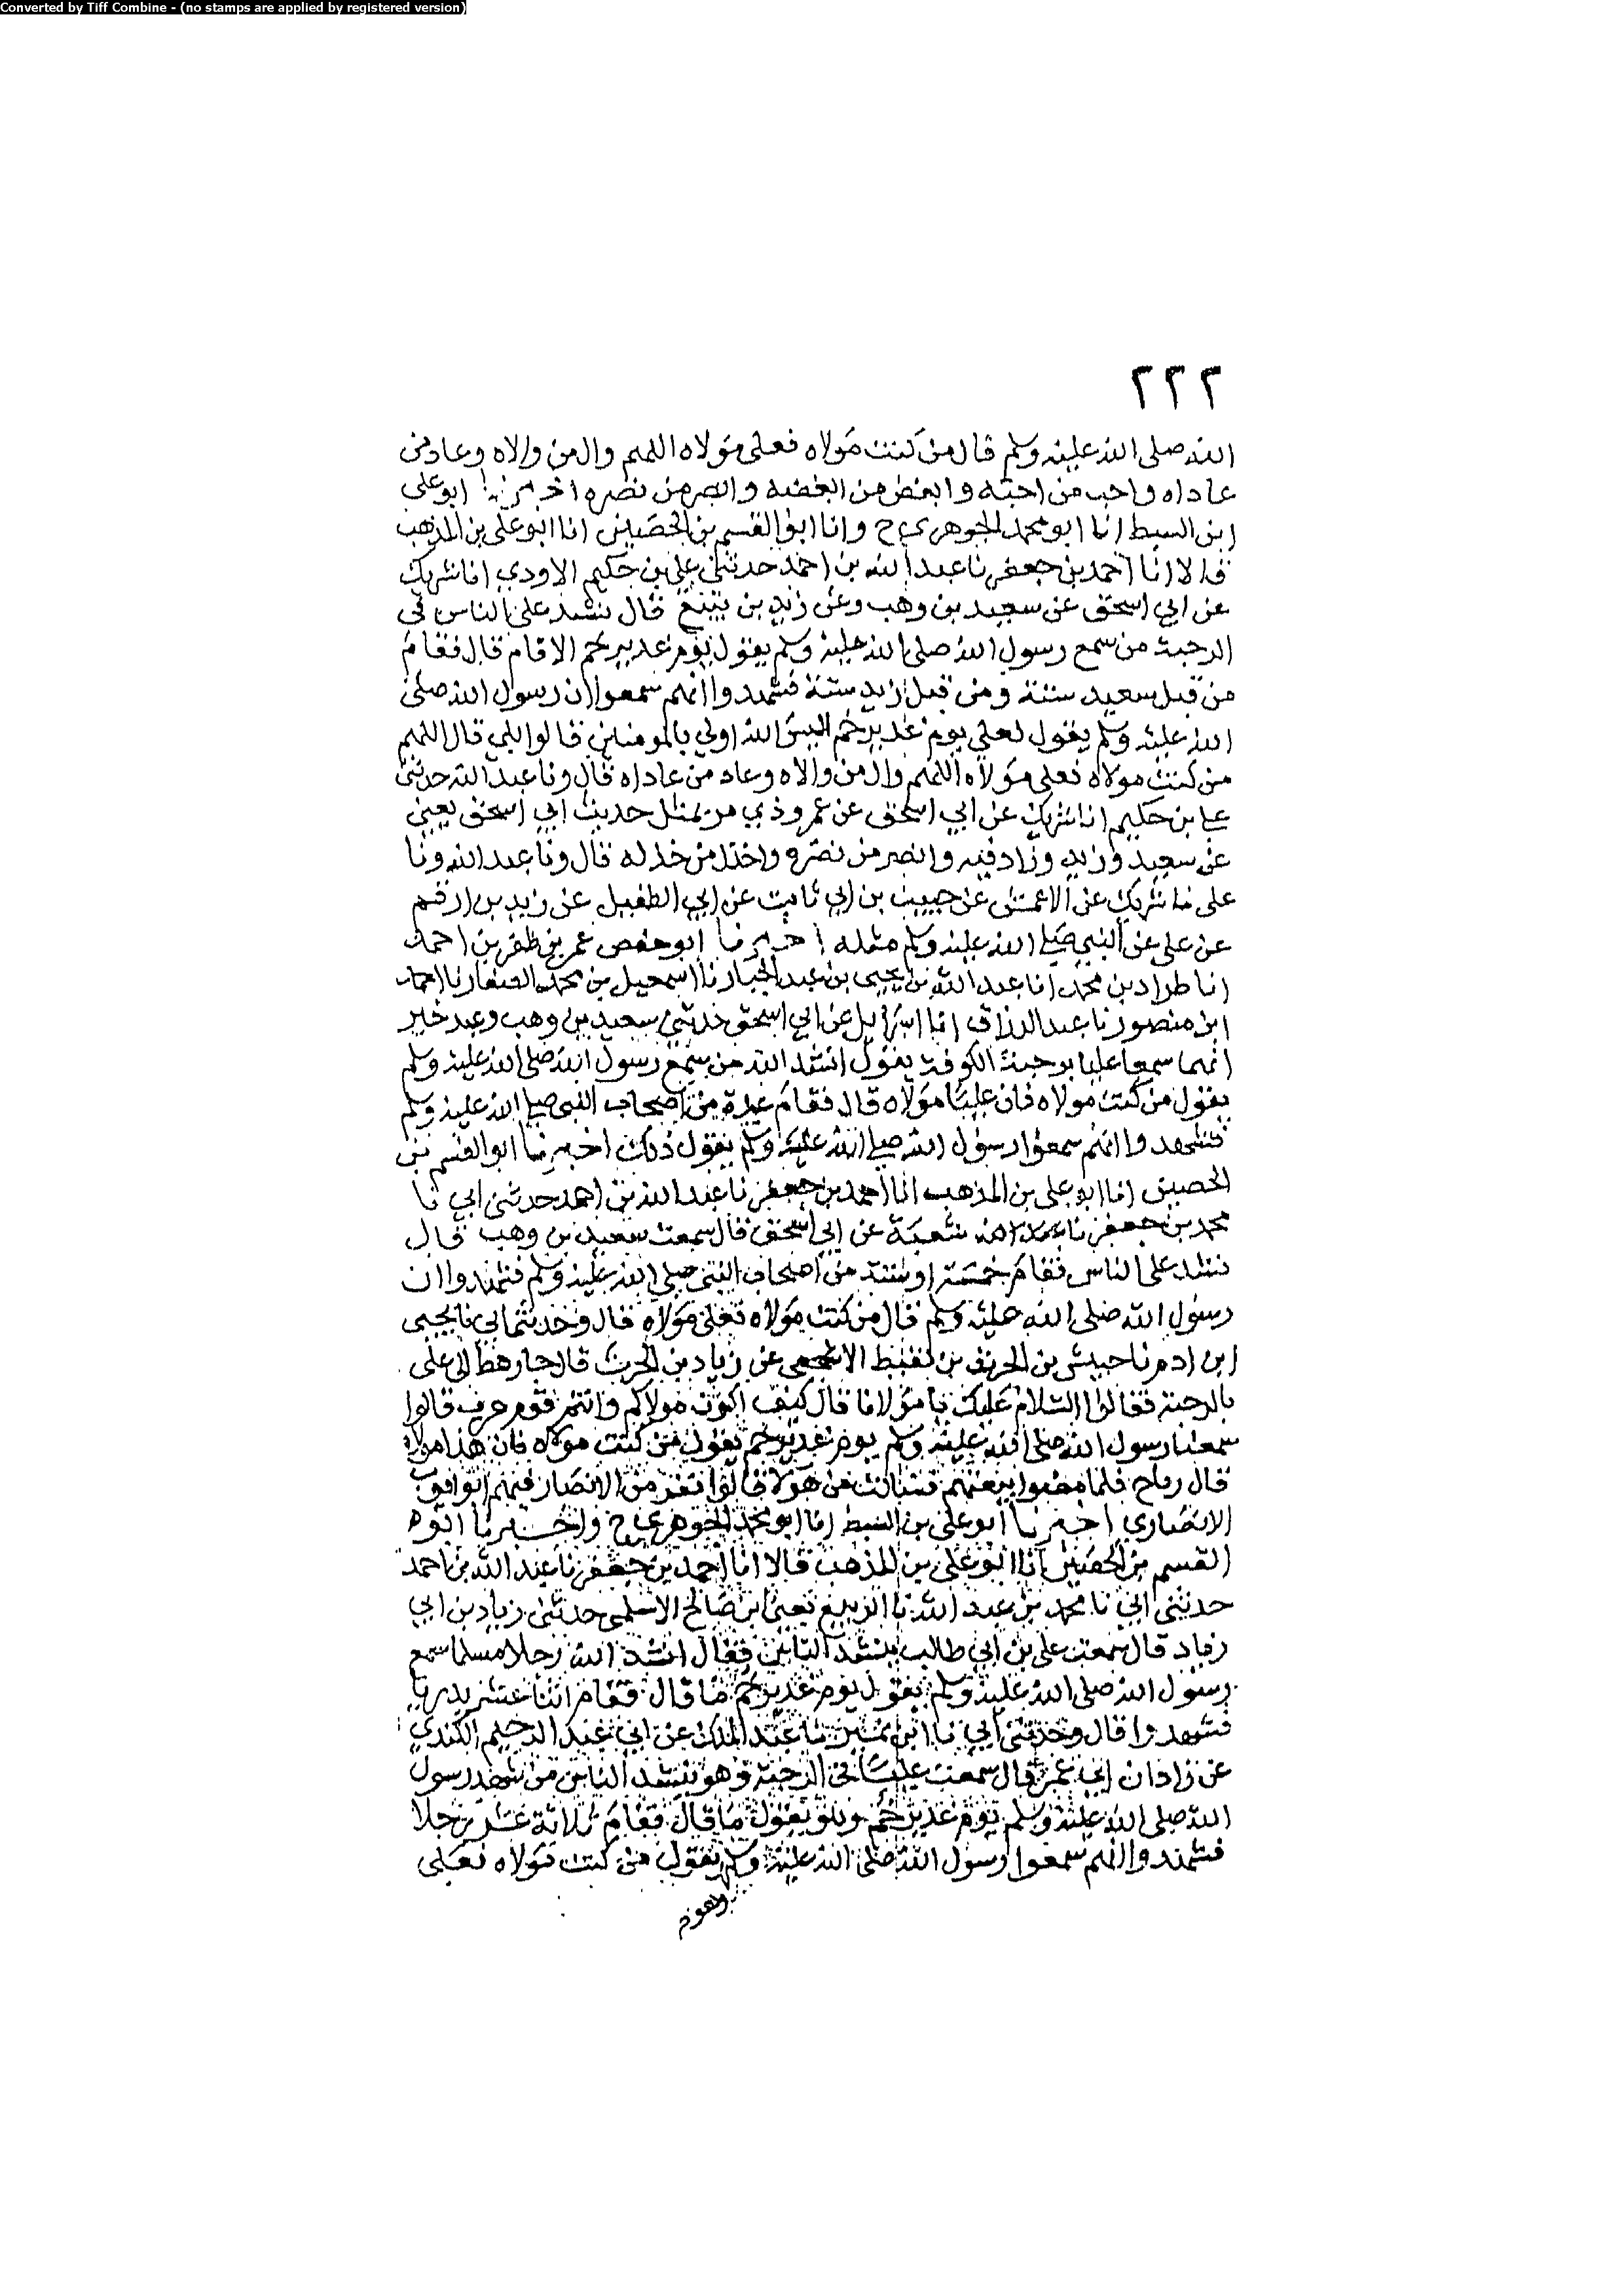 Converted by Tiff Combine - (no stamps are applied by registered version)
٢٢٢
الله صلى الله عليه وسلم قال من كنت مولاه فعلى مولاه اللهم وال من والاه وعاد من
عاداه واحب من احبه وابغض من ابغضه وانصر من نصره اخبرنا ابو على
ابن السبط انا ابو محمد الجوهري ح وانا ابو القسم بن الحصين انا ابو على بن المذهب
قالا انا احمد بن جعفر نا عبد الله بن احمد حدثني علي بن حكيم الاودي انا شريك
عن ابي اسحق عن سعيد بن وهب وعن زيد بن يثيع قال نشد على الناس في
الرحبة من سمع رسول الله صلى الله عليه وسلم يقول يوم غدير خم الا قام قال فقام
من قبل سعيد ستة ومن قبل زيد ستة فشهدوا انهم سمعوا ان رسول الله صلى
الله عليه وسلم يقول لعلي يوم غدير خم اليس الله اولي بالمومنين قالوا بلي قال اللهم
من كنت مولاه فعلي مولاه اللهم وال من والاه وعاد من عاداه قال ونا عبد الله حدثنى
على بن حكيم انا شريك عن ابي اسحق عن عمرو ذي مر بمثل حديث ابي اسحق يعني
عن سعيد وزيد وزاد فيه وانصر من نصره واخذل من خذله قال ونا عبد الله ونا
على نا شريك عن الاعمش عن حبيب بن ابي ثابت عن ابي الطفيل عن زيد بن ارقم
عن على عن النبي صلى الله عليه وسلم مثله اخبرنا ابو حفص عمر بن ظفر بن احمد
انا طراد بن محمد انا عبد الله بن يحيى بن عبد الجبار نا اسمعيل بن محمد الصفار نا احمد
ابن منصور نا عبد الرزاق انا اسرائيل عن ابي اسحق حدثني سعيد بن وهب وعبد خير
انهما سمعا عليا برحبة الكوفة يقول انشد الله من سمع رسول الله صلى الله عليه وسلم
يقول من كنت مولاه فان عليا مولاه قال فقام عدة من اصحاب النبي صلى الله عليه وسلم
فشهدوا انهم سمعوا رسول الله صلى الله عليه وسلم يقول ذلك اخبرنا ابو القسم بن
الحصين انا ابو على بن المذهب انا احمد بن جعفر نا عبد الله بن احمد حدثنى ابي نا
محمد بن جعفر نا شعبة عن ابي اسحق قال سمعت سعيد بن وهب قال
نشد على الناس فقام خمسة او ستة من اصحاب النبي صلى الله عليه وسلم فشهدوا ان
رسول الله صلى الله عليه وسلم قال من كنت مولاه فعلى مولاه قال وحدثنى ابي نا يحيى
ابن ادم نا حنش بن الحرث بن لقيط الاشجعي عن رياح بن الحرث قال جا رهط الى على
بالرحبة فقالوا السلام عليك يا مولانا قال كيف اكون مولاكم وانتم قوم عرب قالوا
سمعنا رسول الله صلى الله عليه وسلم يوم غدير خم يقول من كنت مولاه فان هذا مولاه
قال رياح فلما مضوا تبعتهم فسالت من هولا قالوا نفر من الانصار فيهم ابو ايوب
الانصاري اخبرنا ابو على بن السبط انا ابو محمد الجوهري ح واخبرنا ابو
القسم بن الحصين انا ابو على بن المذهب قالا انا احمد بن جعفر نا عبد الله بن احمد
حدثنى ابي نا محمد بن عبد الله نا الربيع يعني ابن صالح الاسلمى حدثنى زياد بن ابي
زياد قال سمعت على بن ابي طالب ينشد الناس فقال انشد الله رجلا مسلما سمع
رسول الله صلى الله عليه وسلم يقول يوم غدير خم ما قال فقام اثنا عشر بدريا
فشهدوا قال وحدثنى ابي نا ابن نمير نا عبد الملك عن ابي عبد الرحيم الكندي
عن زاذان ابي عمر قال سمعت عليا في الرحبة وهو ينشد الناس من شهد رسول
الله صلى الله عليه وسلم يوم غدير خم وهو يقول ما قال فقام ثلاثة عشر رجلا
فشهدوا انهم سمعوا رسول الله صلى الله عليه وسلم يقول من كنت مولاه فعلى